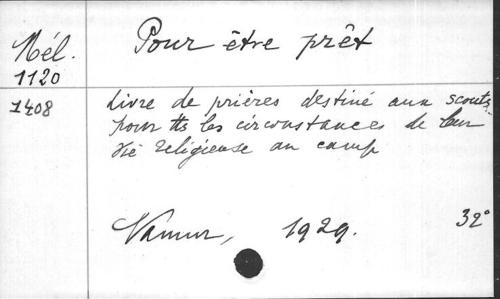 Mél.
1120
1408
Pour être prêt
Livre de prières destiné aux scouts
pour tts les circonstances de leur
vie religieuse au camp
Namur, 1929. 32°